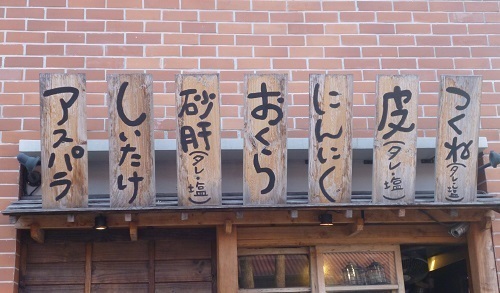 つくね(タレ・塩)
皮(タレ・塩)
にんにく
おくら
砂肝(タレ・塩)
しいたけ
アスパラ